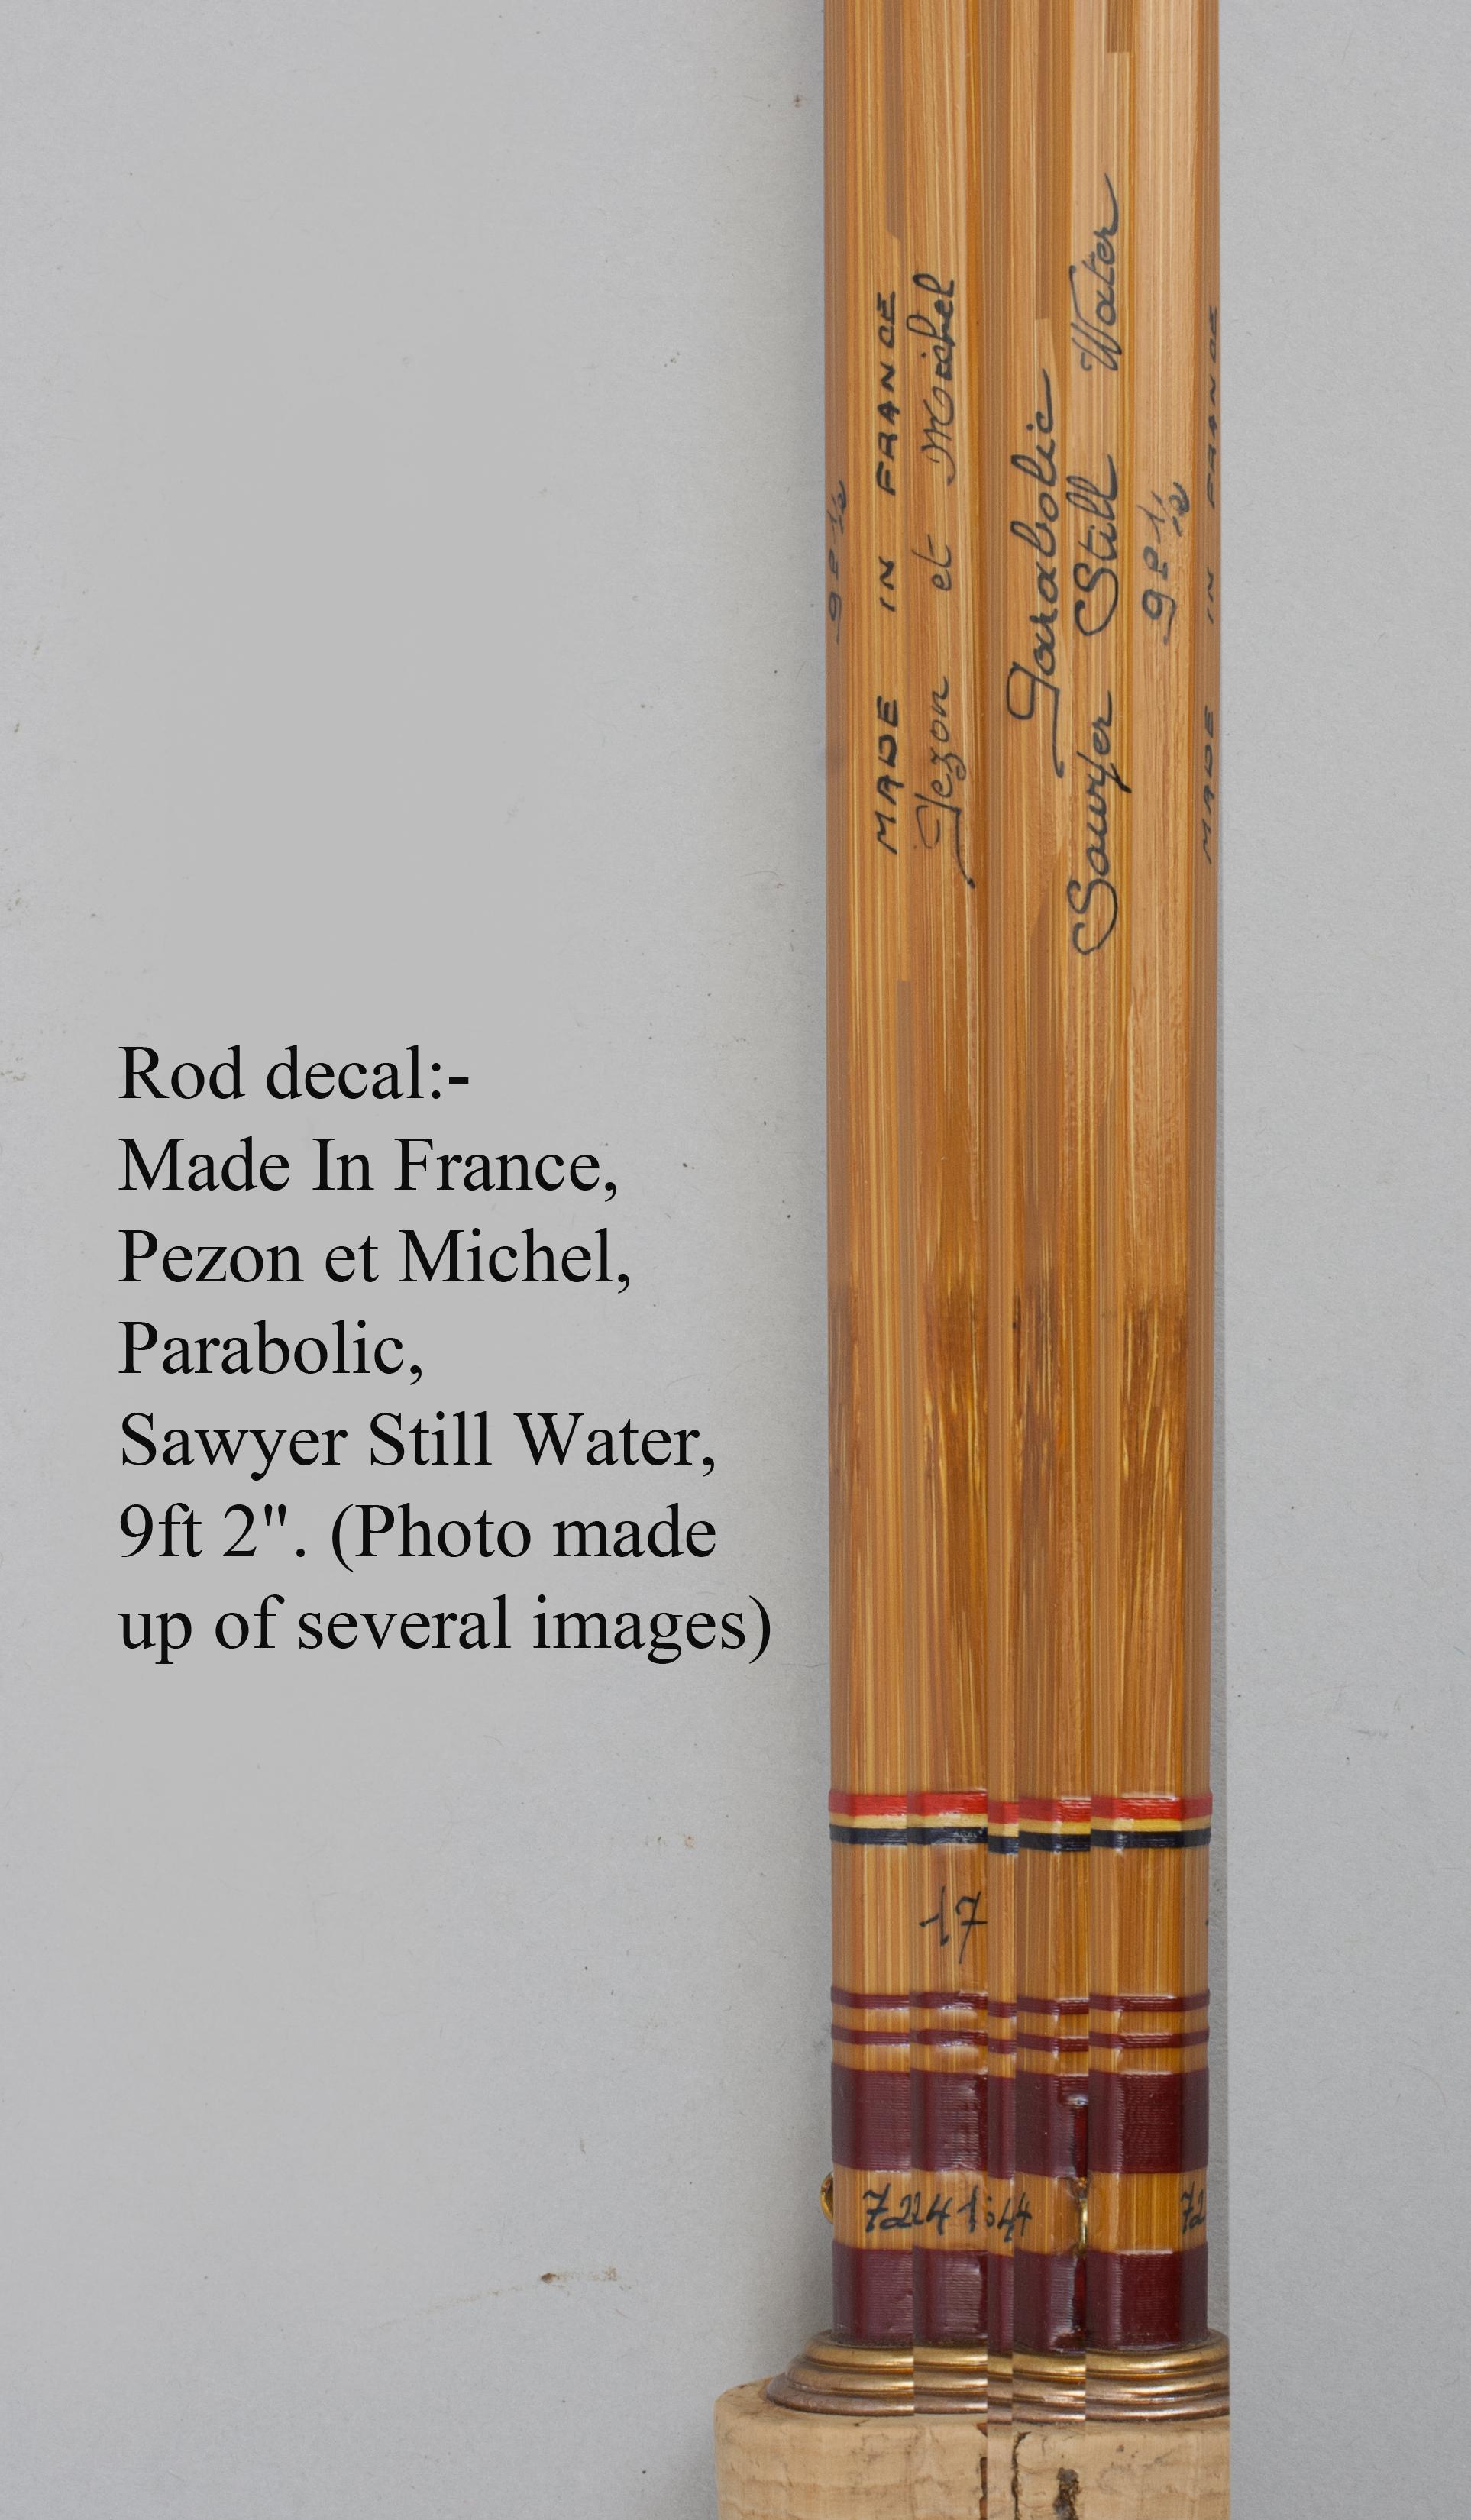 Rod decal:-
Made In France,
Pezon et Michel,
Parabolic,
Sawyer Still Water,
9ft 2". (Photo made
up of several images)
MADE IN FRANCE
Pezon et Michel
Parabolic
Sawyer Still Water
MADE IN FRANCE
17
72